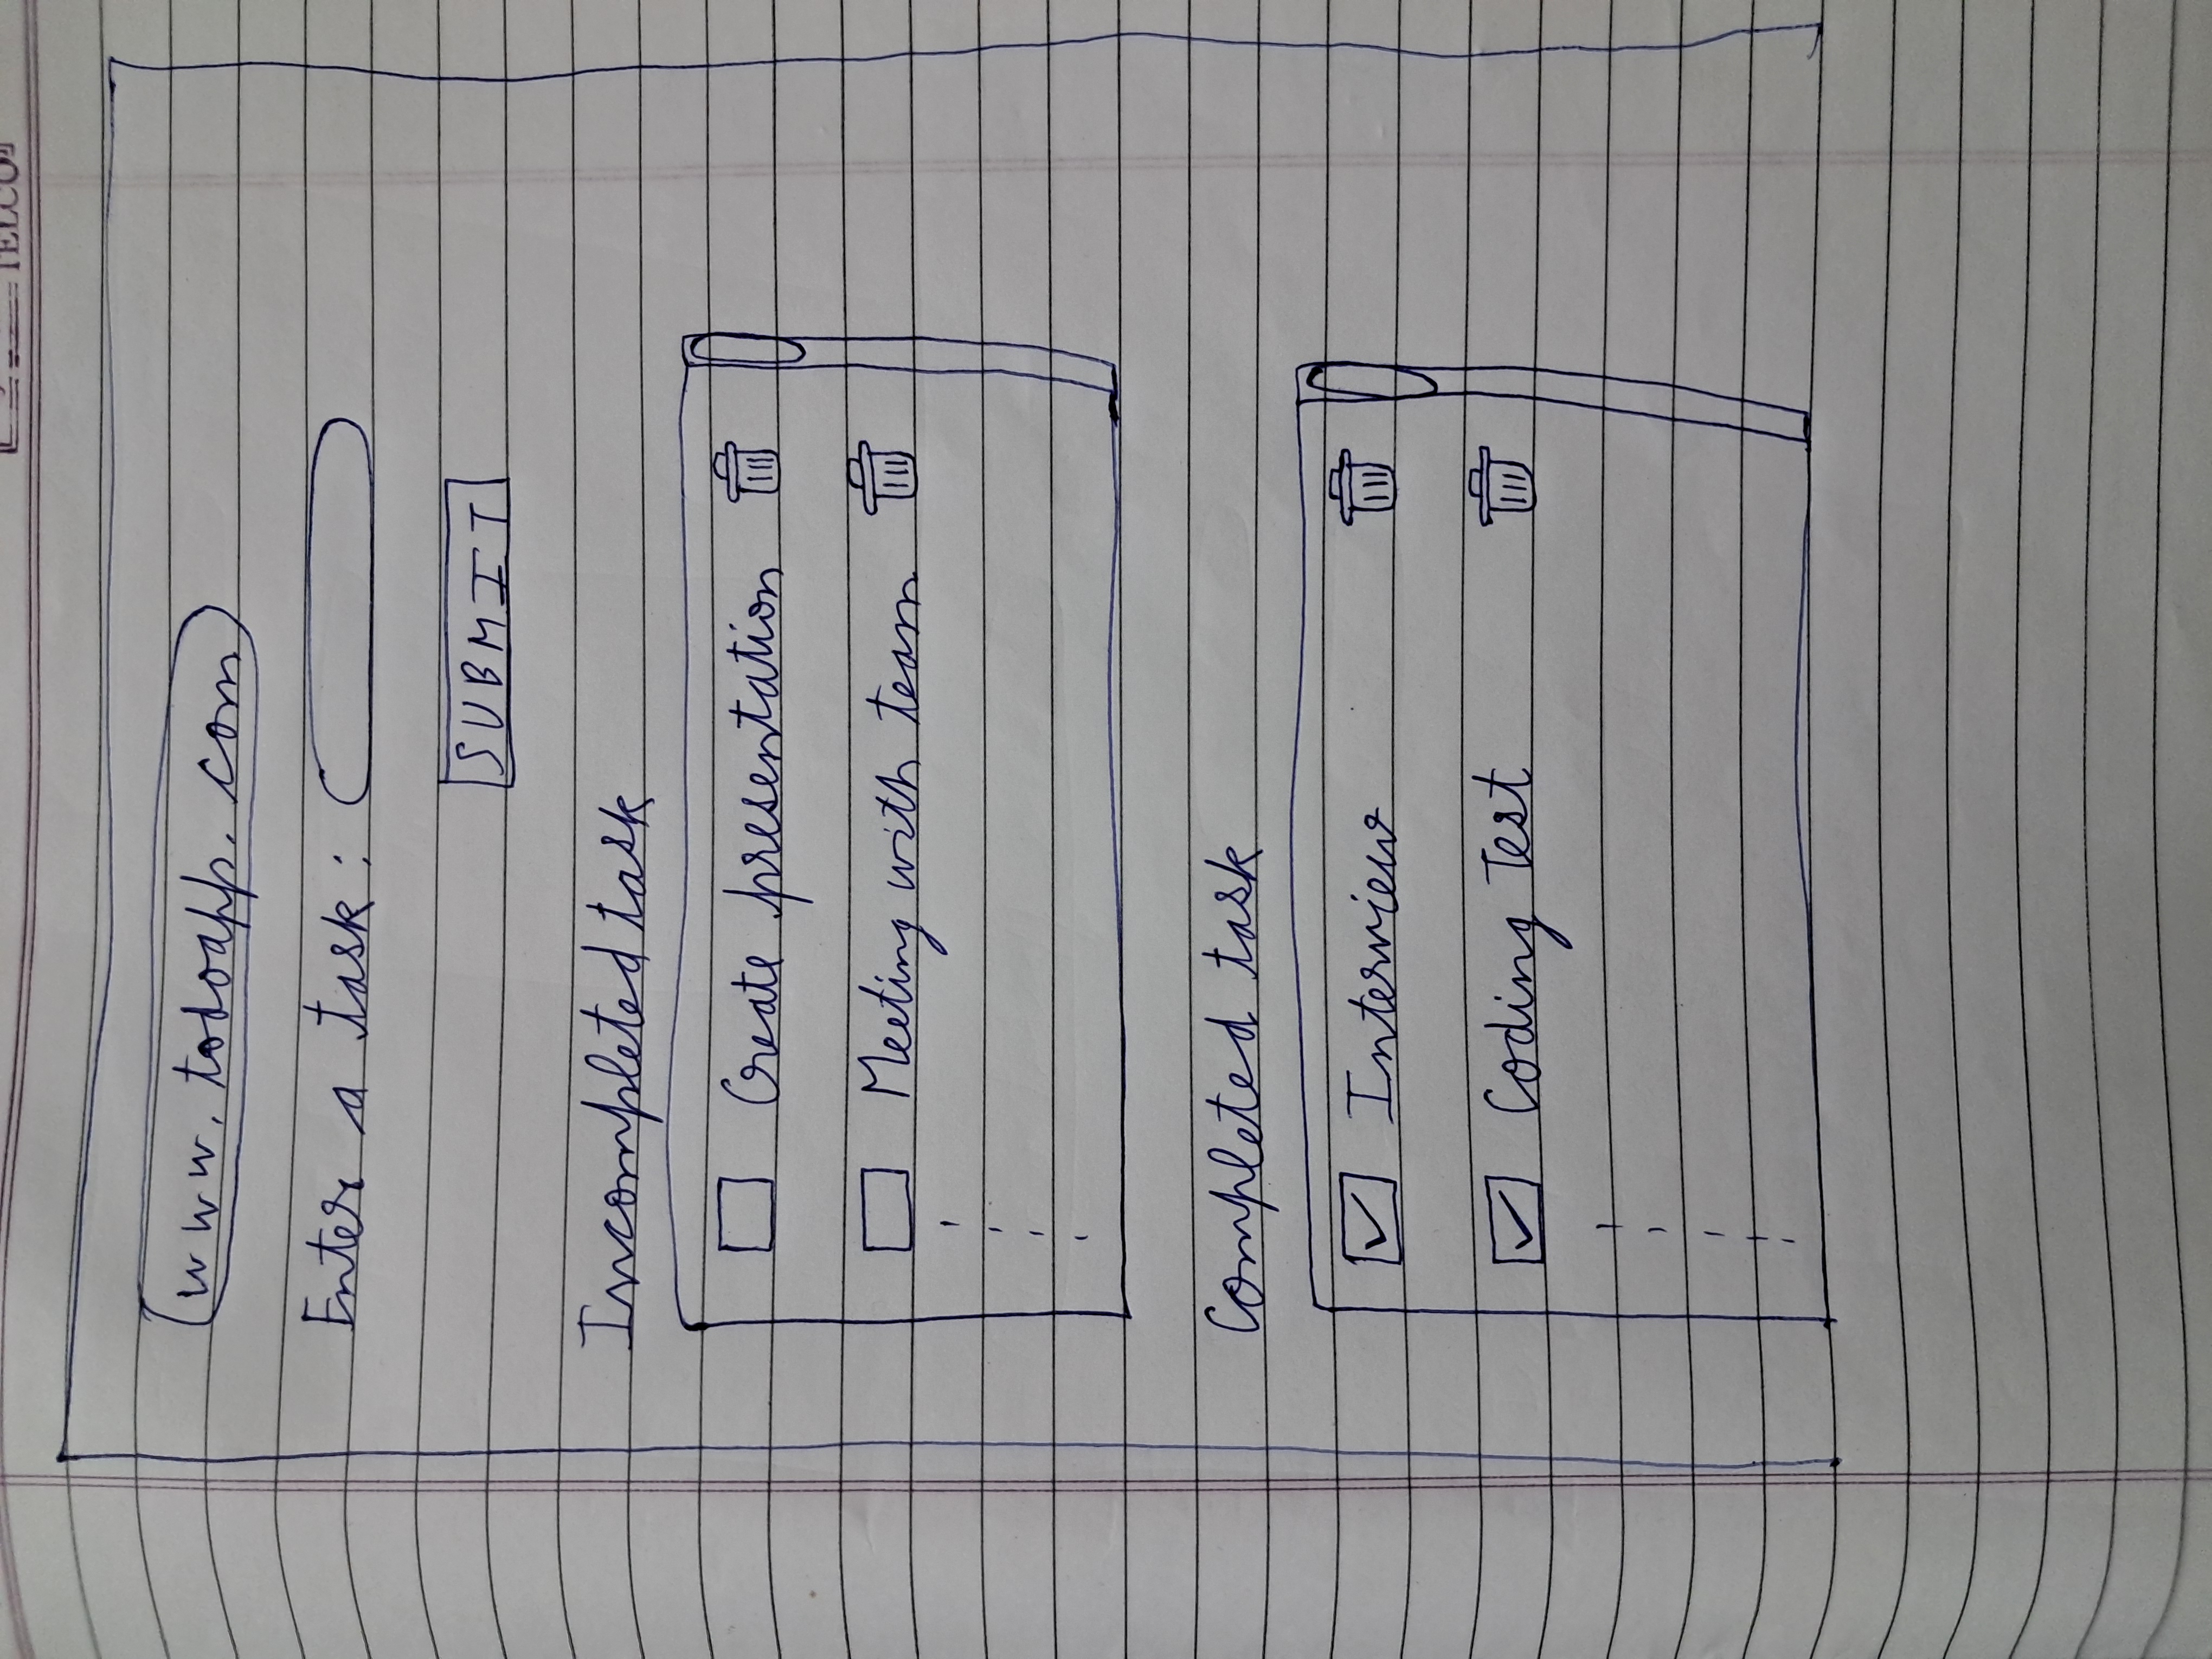 TELCO
www.todoapp.com
Enter a task:
SUBMIT
Incompleted task
Create presentation
Meeting with team
Completed task
Interview
Coding Test